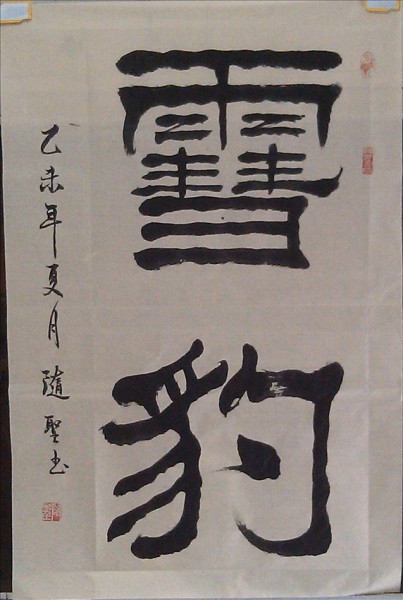 雪豹
乙未年夏月隨聖书